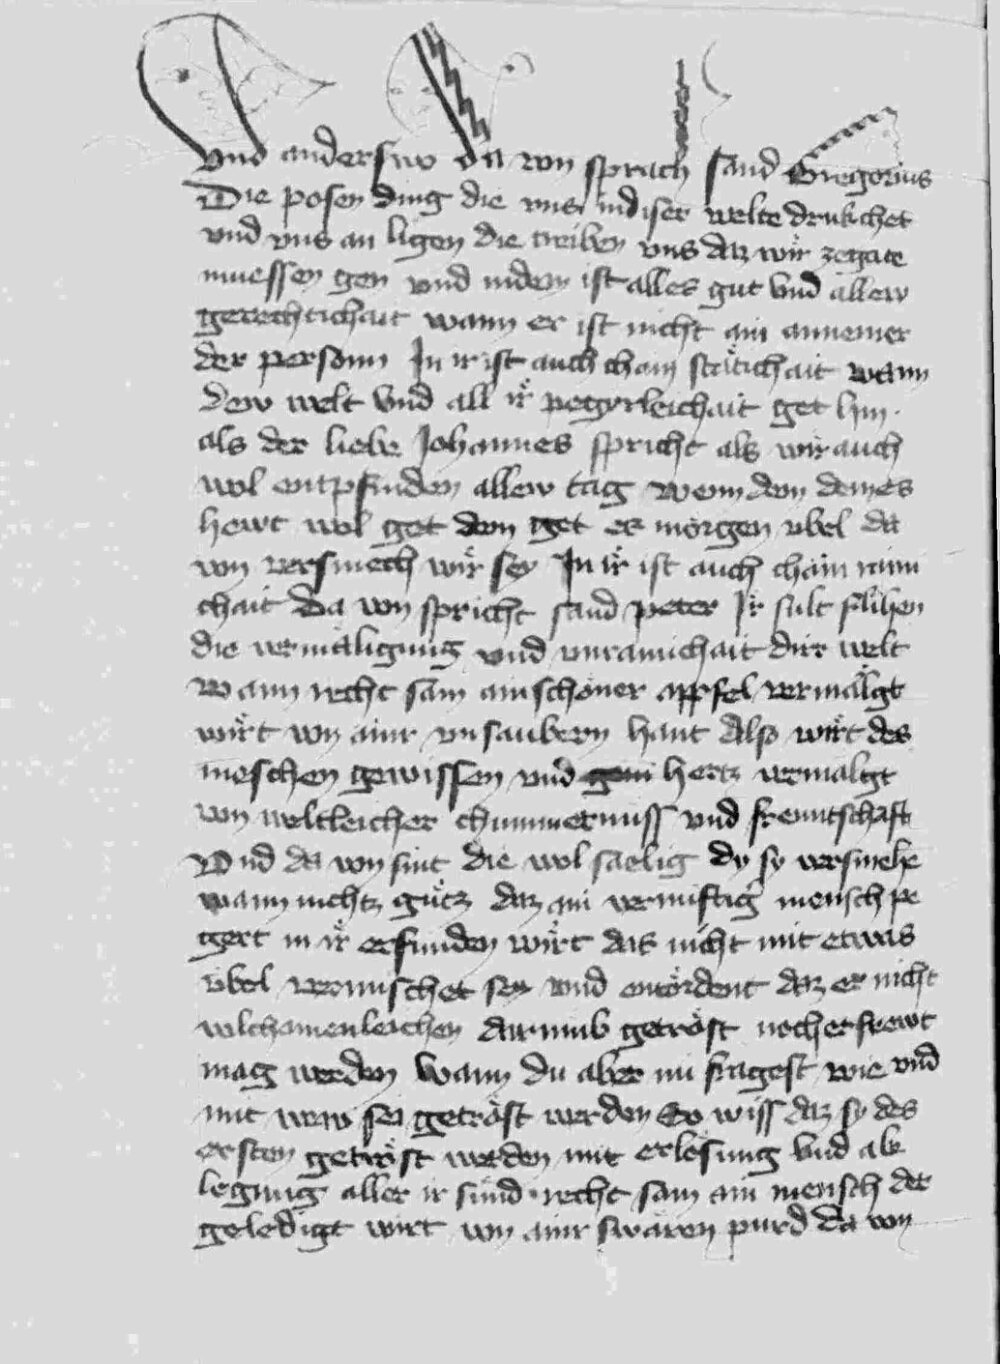 Vnd anderswo da von sprach sand Gregorius
Die posen ding die vns indiser welte drukchet
vnd vns an ligen die treiben vns daz wir zegate
muessen gen vnd indem ist alles gut vnd allew
gerechtichait wann er ist nicht ain annemer
der personn In ir ist auch chain stätichait wann
dew welt vnd all ir̈ pegyrleichait get hin
als der liebe Johannes spricht als wir auch
wol enpfinden allew tag wenn dem demes
hewt wol get dem get es morgen vbel da
von versmech wir̈ sey In ir̈ ist auch chain rain
chait Da von spricht sand peter Ir̈ sult flihen
die vermäligung vnd vnrainichait dirr welt
wann recht sam ain schoner appfel vermäligt
wir̈t von ainr vnsaubern hant Also wir̈t des
meschen gewissen vnd hertz vermäligt
von weltleicher chummernuss vnd freuntschaft
Vnd da von sint die wol saelig dy sy versmehe
wann nichtz gütz daz ain vernuftig mensch pe
gert in ir̈ erfunden wir̈t das nicht mit etwas
übel vermischet sey vnd entördent daz er nicht
volchomenleichen darumb getröst noch erfrewt
mag werden Wann du aber nu fragest wie vnd
mit wew sei getröst werden So wiss daz sy des
ersten getröst werden mit erlösung vnd ab
legung aller ir sünd recht sam ain mensch der
geledigt wirt von ainr swären purd da von